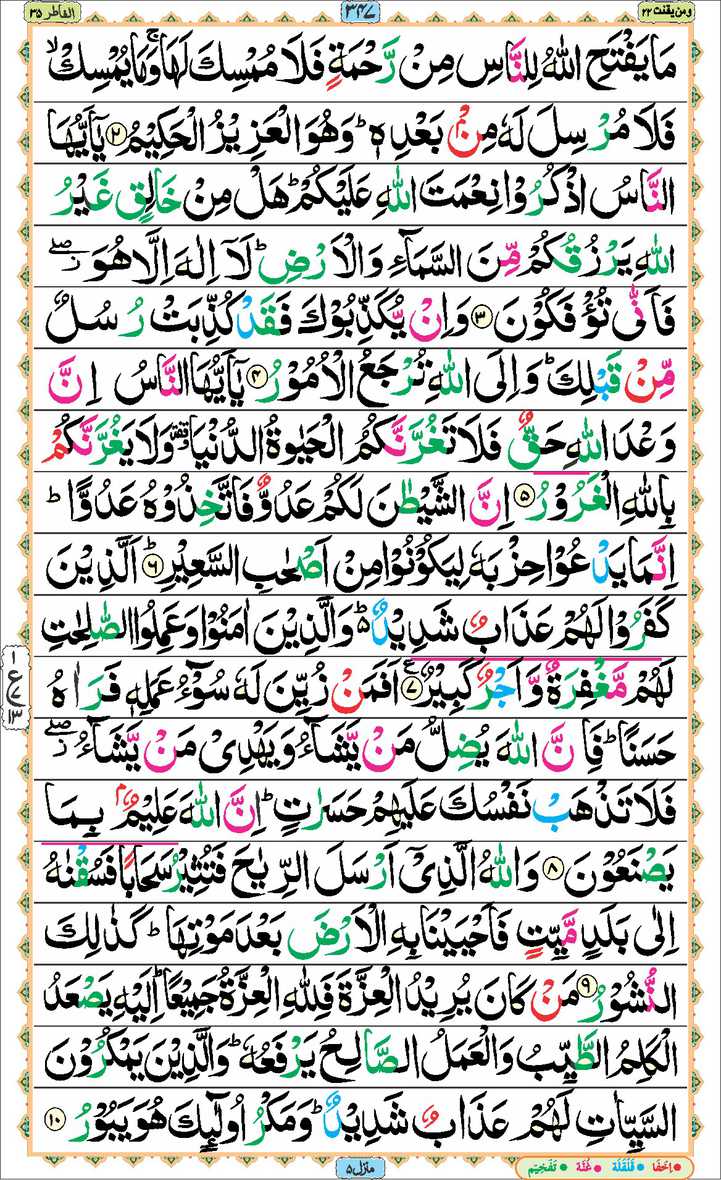 ومن يقنت ٢٢
٣٤٧
الفاطر ٣٥
مَا يَفْتَحِ اللّٰهُ لِلنَّاسِ مِنْ رَّحْمَةٍ فَلَا مُمْسِكَ لَهَا ۚ وَمَا يُمْسِكْ ۙ
فَلَا مُرْسِلَ لَهٗ مِنْۢ بَعْدِهٖ ؕ وَهُوَ الْعَزِيْزُ الْحَكِيْمُ ٢ يٰۤاَيُّهَا
النَّاسُ اذْكُرُوْا نِعْمَتَ اللّٰهِ عَلَيْكُمْ ؕ هَلْ مِنْ خَالِقٍ غَيْرُ
اللّٰهِ يَرْزُقُكُمْ مِّنَ السَّمَآءِ وَالْاَرْضِ ؕ لَاۤ اِلٰهَ اِلَّا هُوَ ۖز
فَاَنّٰى تُؤْفَكُوْنَ ٣ وَاِنْ يُّكَذِّبُوْكَ فَقَدْ كُذِّبَتْ رُسُلٌ
مِّنْ قَبْلِكَ ؕ وَاِلَى اللّٰهِ تُرْجَعُ الْاُمُوْرُ ٤ يٰۤاَيُّهَا النَّاسُ اِنَّ
وَعْدَ اللّٰهِ حَقٌّ فَلَا تَغُرَّنَّكُمُ الْحَيٰوةُ الدُّنْيَا ۥقف وَلَا يَغُرَّنَّكُمْ
بِاللّٰهِ الْغَرُوْرُ ٥ اِنَّ الشَّيْطٰنَ لَكُمْ عَدُوٌّ فَاتَّخِذُوْهُ عَدُوًّا ؕ
اِنَّمَا يَدْعُوْا حِزْبَهٗ لِيَكُوْنُوْا مِنْ اَصْحٰبِ السَّعِيْرِ ؕ ٦ اَلَّذِيْنَ
كَفَرُوْا لَهُمْ عَذَابٌ شَدِيْدٌ ؕ۬ وَالَّذِيْنَ اٰمَنُوْا وَعَمِلُوا الصّٰلِحٰتِ
لَهُمْ مَّغْفِرَةٌ وَّاَجْرٌ كَبِيْرٌ ٧ ع اَفَمَنْ زُيِّنَ لَهٗ سُوْٓءُ عَمَلِهٖ فَرَاٰهُ
حَسَنًا ؕ فَاِنَّ اللّٰهَ يُضِلُّ مَنْ يَّشَآءُ وَيَهْدِىْ مَنْ يَّشَآءُ ۖز
فَلَا تَذْهَبْ نَفْسُكَ عَلَيْهِمْ حَسَرٰتٍ ؕ اِنَّ اللّٰهَ عَلِيْمٌۢ بِمَا
يَصْنَعُوْنَ ٨ وَاللّٰهُ الَّذِىْۤ اَرْسَلَ الرِّيٰحَ فَتُثِيْرُ سَحَابًا فَسُقْنٰهُ
اِلٰى بَلَدٍ مَّيِّتٍ فَاَحْيَيْنَا بِهِ الْاَرْضَ بَعْدَ مَوْتِهَا ؕ كَذٰلِكَ
النُّشُوْرُ ٩ مَنْ كَانَ يُرِيْدُ الْعِزَّةَ فَلِلّٰهِ الْعِزَّةُ جَمِيْعًا ؕ اِلَيْهِ يَصْعَدُ
الْكَلِمُ الطَّيِّبُ وَالْعَمَلُ الصَّالِحُ يَرْفَعُهٗ ؕ وَالَّذِيْنَ يَمْكُرُوْنَ
السَّيِّاٰتِ لَهُمْ عَذَابٌ شَدِيْدٌ ؕ وَمَكْرُ اُولٰٓئِكَ هُوَ يَبُوْرُ ١٠
١
ع
٧
١٣
منزل ٥
اِخفَا قَلقَلَة غُنَّة تَفخِيم